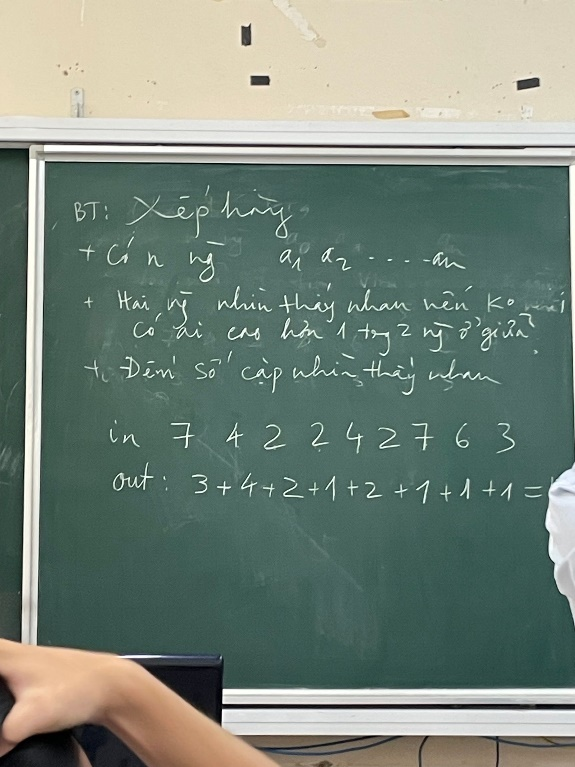 BT: Xếp hàng
+ Có n ng̃ a1 a2 ..... an
+ Hai ng̃ nhìn thấy nhau nếu Ko
có ai cao hơn 1 trg 2 ng̃ ở giữa
+ Đếm số cặp nhìn thấy nhau
in 7 4 2 2 4 2 7 6 3
out: 3+4+2+1+2+1+1+1=